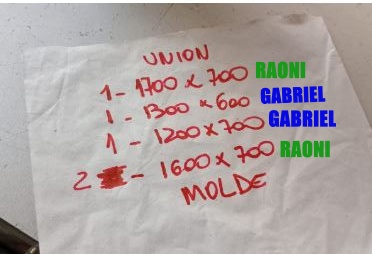 UNION
1 - 1700 x 700 RAONI
1 - 1300 x 600 GABRIEL
1 - 1200 x 700 GABRIEL
2 - 1600 x 700 RAONI
MOLDE